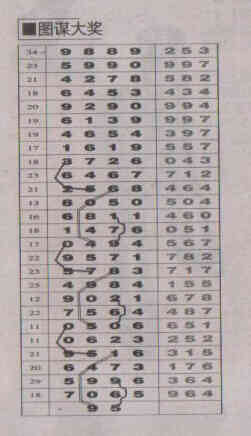 ■图谋大奖
34 9 8 8 9 2 5 3
23 5 9 9 0 9 9 7
21 4 2 7 8 5 8 2
18 6 4 5 3 4 3 4
20 9 2 9 0 9 9 4
19 6 1 3 9 9 9 7
19 4 6 5 4 3 9 7
17 1 6 1 9 5 5 7
18 3 7 2 6 0 4 3
23 6 4 6 7 7 1 2
21 2 5 6 8 4 6 4
6 0 5 0 5 0 4
16 6 8 1 1 4 6 0
1 4 7 6 0 5 1
17 0 4 9 4 5 6 7
22 9 5 7 1 7 8 2
23 5 7 8 3 7 1 7
25 4 9 8 4 1 5 5
12 9 0 2 1 6 7 8
22 7 5 6 4 4 8 7
11 0 5 0 6 6 5 1
11 0 6 2 3 2 5 2
6 1 6 3 1 5
20 6 4 7 3 1 7 6
29 5 9 9 6 3 6 4
18 7 0 6 5 9 6 4
9 5